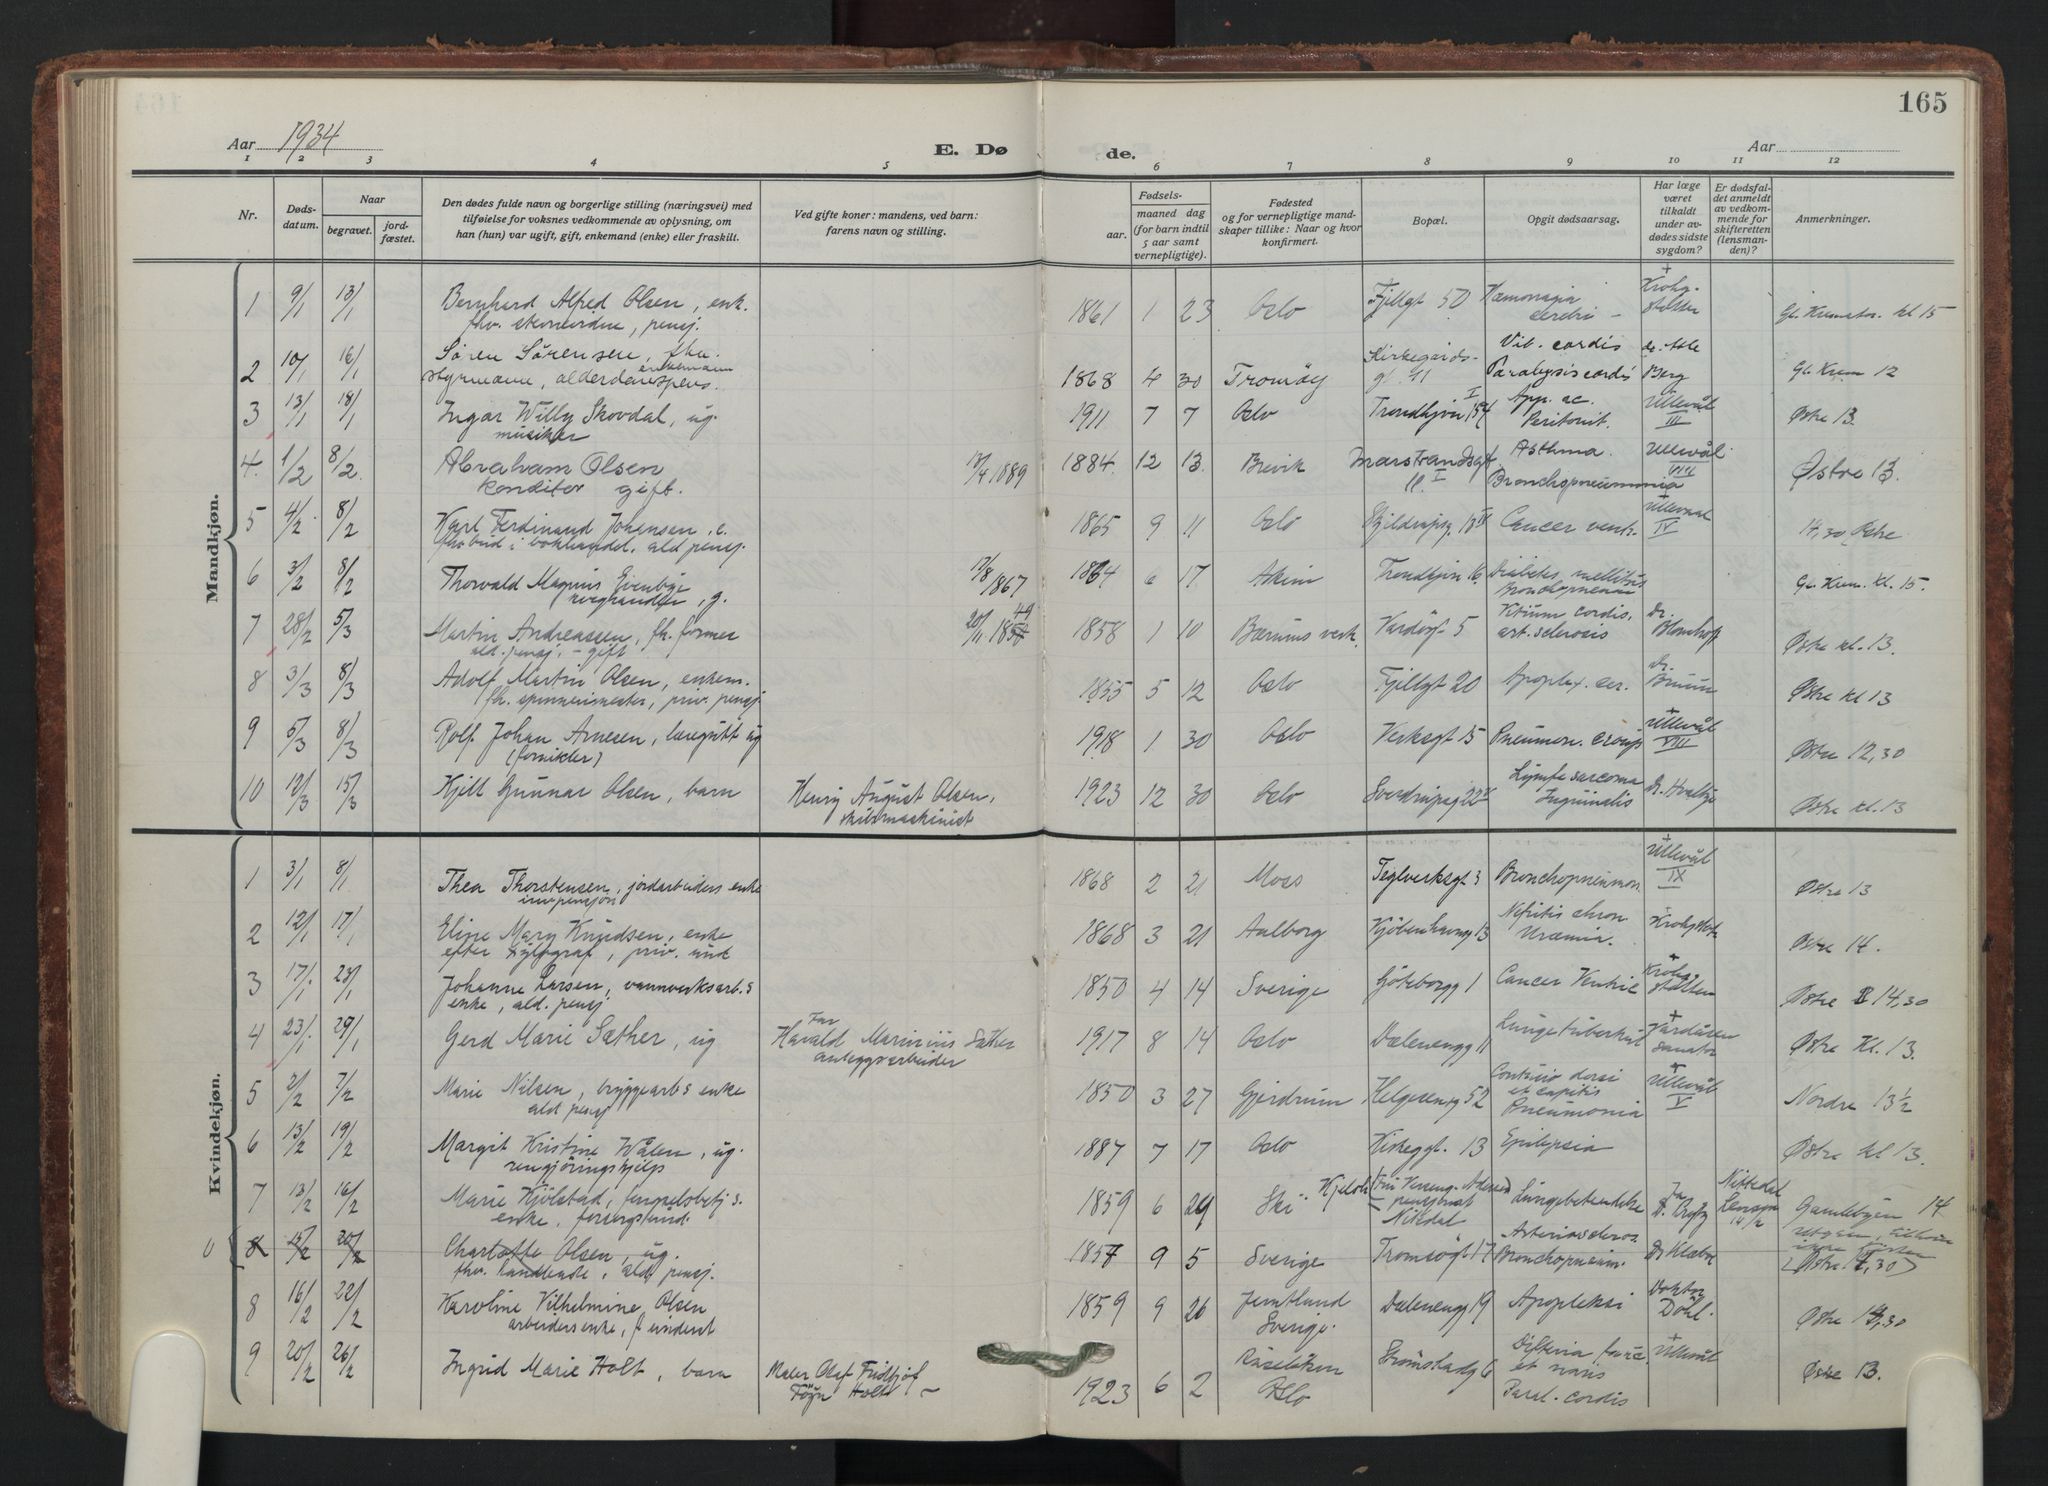 165
Aar 1934
E. Dø
de.
Aar
1 2 3 4 5 6 7 8 9 10 11 12
Nr.
Døds-
datum.
Naar
begravet.
jord-
fæstet.
Den dødes fulde navn og borgerlige stilling (næringsvei) med
tilføielse for voksnes vedkommende av oplysning, om
han (hun) var ugift, gift, enkemand (enke) eller fraskilt.
Ved gifte koner: mandens, ved barn:
farens navn og stilling.
Fødsels-
aar.
maaned dag
(for barn indtil
5 aar samt
vernepligtige).
Fødested
og for vernepligtige mand-
skaper tillike: Naar og hvor
konfirmert.
Bopæl.
Opgit dødsaarsag.
Har læge
været
tilkaldt
under av-
dødes sidste
sygdom?
Er dødsfal-
det anmeldt
av vedkom-
mende for
skifteretten
(lensman-
den)?
Anmerkninger.
Mandkjøn.
1 9/1 13/1 Bernhard Alfred Olsen, enk. 1861 1 23 Oslo Fjellgt 50 Gl. Kremator. kl 15
fhv. pensj.
2 10/1 16/1 Søren Sørensen, fhv. 1868 4 30 Tromøy Kirkegårds- Vit. cordis
styrmann, enkemann Paralysis cordis Berg Gl. Krem 12
3 13/1 18/1 Ingar Willy Skovdal, ug. 1911 7 7 Oslo App. ac. Ullevål Østre 13
musiker Peritonit. III
4. 1/2 8/2 Abraham Olsen 1889 1884 12 13 Brevik Marstrandsgt. Asthma. Ullevål Østre 13
konditor gift. 11 I Bronchopneumonia VIII
5 4/2 8/2 Karl Ferdinand Johansen, e. 1865 9 11 Oslo Cancer ventr. Ullevaal IV 14,30 Østre
fhv bud i bokhandel, ald pensj.
6 3/2 8/2 Thorvald Magnus , g. 17/8 1867 1864 6 17 Askim Trondhjem 16 Diabetes mellitus Gl. Krem. kl. 15.
7 28/2 5/3 Martin Andreassen, fh. former 20/11 1858 1 10 Bærums verk. Vardøg. 5 cordis. Dr. Østre kl. 13.
ald. pensj. - gift art. sclerosis
8 3/3 8/3 Adolf Martin Olsen, enkem. 1855 5 12 Oslo Fjellgt 20 Apoplex. cer. Dr. Bruun Østre kl 13
fh. spinnerimester, priv. pensj.
9 5/3 8/3 Rolf Johan Arnesen, læregutt ug 1918 1 30 Oslo Verksgt 15 Pneumon. croup Ullevål VIII Østre 12,30
(fornikler)
10 12/3 15/3 Kjell Gunnar Olsen, barn Henry August Olsen, 1923 12 30 Oslo Sverdrupsg 22 Lymfe sarcoma Østre kl. 13
Inguinalis
Kvindekjøn.
1 3/1 8/1 Thea Thorstensen, jordarbeiders enke 1868 2 21 Moss Teglverksgt 3 Bronchopneumon. Ullevål IX Østre 13
2 12/1 17/1 Eline Mary Knudsen, enke 1868 3 21 Aalborg Kjøbenhavng 13 Nefritis chron Østre 14.
efter Xylograf, priv. und Uræmia.
3 17/1 23/1 Johanne Larsen, vannverksarb.s 1850 4 14 Sverige Göteborgg 1 Cancer Ventric Østre 14,30
enke, ald. pensj
4 23/1 29/1 Gerd Marie Sæther, ug Far 1917 8 14 Oslo Dælenengg 11 Lungetuberkul Vardåsen Østre Kl. 13.
Harald Marinius Sæther Sanator
anleggsarbeider
5 2/2 7/2 Marie Nilsen, bryggearb s enke 1850 3 27 Gjerdrum Helgesensg 52 Contusio dorsi Ullevål Nordre 13½
ald pensj et capitis V
Pneumonia
6 13/2 19/2 Margit Kristine Wålen, ug. 1887 7 17 Oslo Kirkeggt. 13 Epilepsia Østre kl 13.
rengjøringshjelp
7 13/2 16/2 Marie Kjølstad, fengselsbetj s. 1859 6 29 Ski Lungebetendelse Gamlebyen 14
enke, forsorgsund. Nittedal
8 15/2 20/2 Charlotte Olsen, ug. 1857 9 5 Sverige Tromsøgt 17 Arterioscleros.
ald pensj. Bronchopneum.
8 16/2 22/2 Karoline Vilhelmine Olsen 1859 9 26 Jemtland Dælenengg 19 Apopleksi Doktor Østre 14,30
arbeiders enke, Sverige. Döhl.
9 20/2 26/2 Ingrid Marie Holt, barn Maler Olaf Fridtjof 1923 6 2 Strömstadg 6 Difteria Ullevål Østre 13.
Føyn Holt Oslo et naris
Paral. cordis